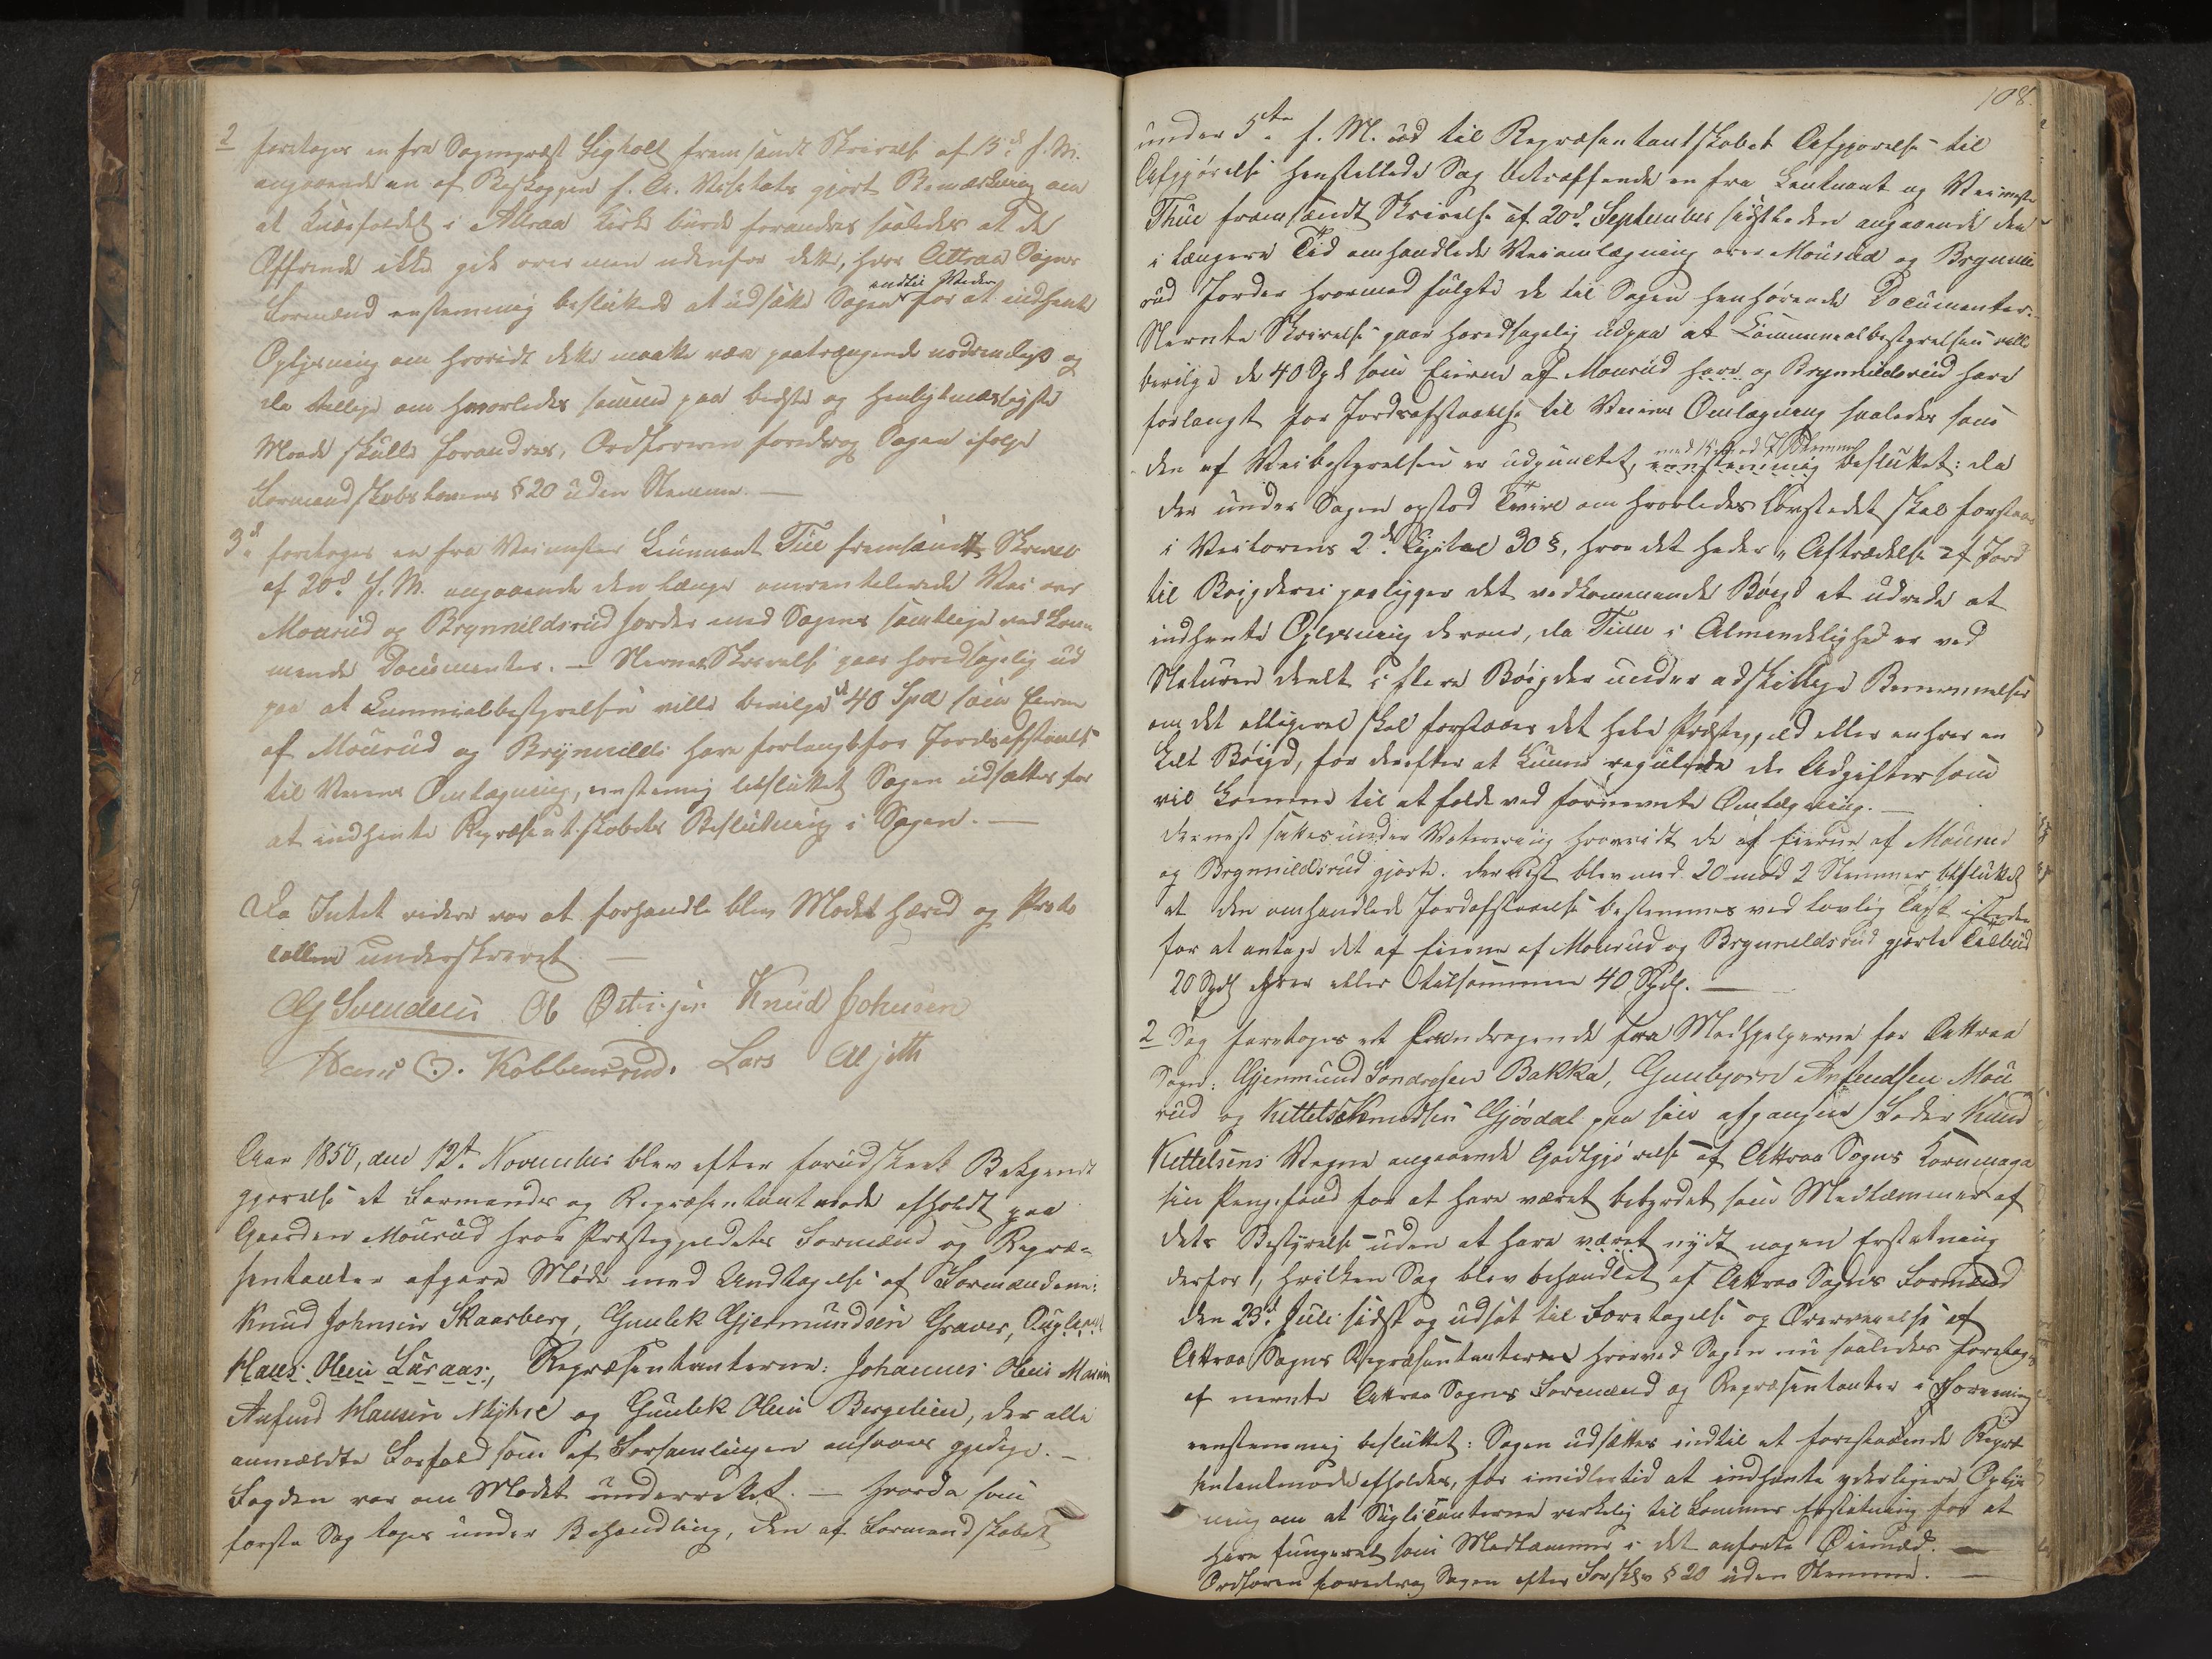 2 foretoges en fra Sognepræst Sigholt fremsendt Skrivelse af 13d f. M.
angaaende en af Biskoppen f. A. Visitats gjort Bemærkning om
at Knæfaldet i Attraa Kirke burde forandres saaledes at de
Offrende ikke gik over men udenfor dette, hvor Attraa Sogns
Formænd enstemmig besluttede at udsætte Sagen indtil Videre for at indhente
Oplysning om hvorvidt dette maatte være paatrængende nødvendigt og
da tillige om hvorledes samme paa bedste og hensigtmæssigste
Maade skulle forandres, Ordføreren foredrog Sagen ifølge
Formandskabslovens § 20 uden Stemme. —
3d foretoges en fra Veimester Leutnant Tue fremsendt Skrivelse
af 20d f. M. angaaende den længe omventilerede Vei over
Mourud og Brynnildsrud Jorder med Sagens samtlige vedkom
mende Documenter. — Nævnte Skrivelse gaar hovedsagelig ud
paa at Communalbestyrelsen ville bevilge 40 Spd som Eierne
af Mourud og Brynnilds have forlangt for Jordsafstaaelse
til Veiens Omlægning, enstemig besluttet Sagen udsættes for
at indhente Repræsentskabets Beslutning i Sagen. —
Da Intet videre var at forhandle blev Mødet hævet og Proto
collen underskrevet. —
Gj Svendsen Ol Østensjen Knud Johnsen
Hans O. Kobbenrud. Lars
Aar 1850, den 12te November blev efter forudskeet Bekjendt
gjørelse et Formands og Repræsentantmøde afholdt paa
Gaarden Mourud hvor Præstegjeldets Formænd og Repræ-
sentanter afgave Møde med Undtagelse af Formændene:
Knud Johnsen Skaarberg, Gunlek Gjermundsen Graver,
Hans Olsen Luraas, Repræsentanterne: Johannes Olsen Maren
Anfind Hansen Myhre og Gunlek Olsen Bergelien, der alle
anmældte Forfald som af Forsamlingen ansaaes gyldige. —
Fogden var om Mødet underrettet. — hvorda som
første Sag toges under Behandling, den af Formandskabet
108.
under 5te f. M. ud til Repræsentantskabets Afgjørelse til
Afgjørelse henstillede Sag betræffende en fra Leutnant og Veimester
Thue fremsendt Skrivelse af 20d September sidstleden angaaende den
i længere Tid omhandlede Veiomlægning over Mourud og Brynnilds
rud Jorder hvormed fulgte de til Sagen henhørende Documenter.
Nævnte Skrivelse gaar hovedsagelig udpaa at Communalbestyrelsen ville
bevilge de 40 Spd som Eierne af Mourud have og Brynnildsrud have
forlangt for Jordsafstaaelse til Veiens Omlægning saaledes som
den af Veibestyrelsen er udpunctet, med 15 mod 7 Stemmer eenstemmig besluttet: da
der under Sagen opstod Tvivl om hvorledes Lovstedet skal forstaaes
i Veilovens 2det Capital 30 §, hvor det heder „Aftrædelse af Jord
til Boigdevei paaligger det vedkommende Bøigd at udrede at
indhente Oplysning derom, da Tinn i Almindelighed er ved
Naturen deelt i flere Bøigder under adskillige Benævnelser
om det alligevel skal forstaaes det hele Præstegjeld eller enhver en
kelt Bøigd, for derefter at kunne regulere de Udgifter som
vil komme til at falde ved fornævnte Omlægning. —
Dernæst sattes under Votering hvorvidt de af Eierne af Mourud
og Brynnildsrud gjorte. dernæst blev med 20 mod 2 Stemmer besluttet
at den omhandlede Jordafstaaelse bestemmes ved lovlig Taxt isteden
for at antage det af Eierne af Mourud og Brynnildsrud gjorte Tilbud
20 Spdl hver eller tilsammen 40 Spdl. —
2 Sag foretoges et Andragende fra Medhjelperne for Attraa
Sogn: Gjermund Sondresen Bakka, Gunbjørn Anfindsen Mou
rud og Kittel Knudsen Gjøsdal paa sin afgangne Fader Knud
Kittelsens Vegne angaaende Godtgjørelse af Attraa Sogns Kornmaga
sin Pengefond for at have været bebyrdet som Medlemmer af
dets Bestyrelse uden at have været nydt nogen Erstatning
derfor, hvilken Sag blev behandlet af Attraa Sogns Formænd
den 23d Juli sidst og udsat til Foretagelse og Overværelse af
Attraa Sogns Repræsentanter hvorved Sagen nu saaledes foretoges
af nævnte Attraa Sogns Formænd og Repræsentanter i Forening
eenstemmig besluttet: Sagen udsættes indtil et forestaaende Repræ
sentantmøde afholdes, for imidlertid at indhente yderligere Oplys
ning om at Suplicanterne virkelig tilkommer Erstatning for at
have fungeret som Medlemmer i det anførte Øiemed. —
Ordføren foredrog Sagen efter Forskbl § 20 uden Stemme. —